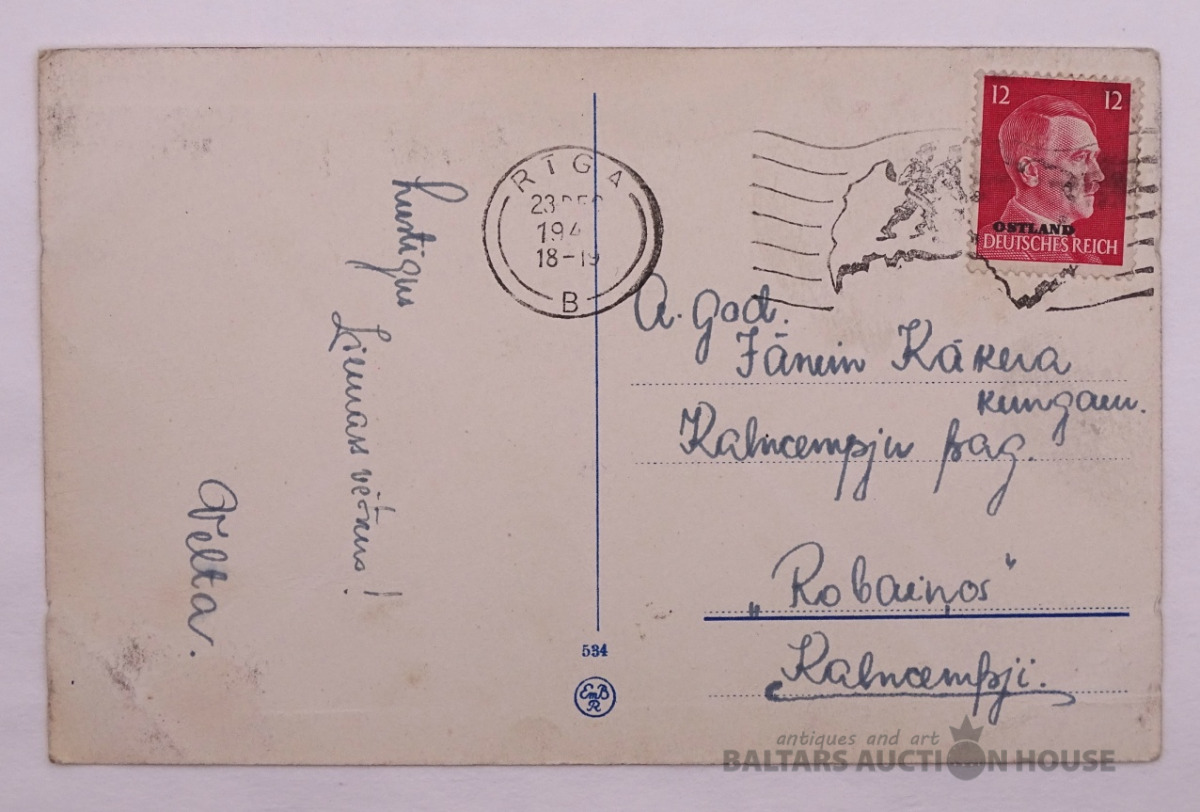 Lustigus
Ziemassvētkus!
Velta.
RĪGA
23 DEC
194
18-19
B
12 12
OSTLAND
DEUTSCHES REICH
A. god.
Jāņim Kākera
kungam.
Kalncempju pag.
„Robaiņos"
Kalncempji.
534
EMBR
antiques and art
BALTARS AUCTION HOUSE